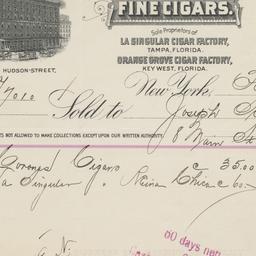 FINE CIGARS.
Sole Proprietors of
LA SINGULAR CIGAR FACTORY,
TAMPA, FLORIDA.
ORANGE GROVE CIGAR FACTORY,
KEY WEST, FLORIDA.
HUDSON-STREET,
New York,
7010
Sold to Joseph
8 Main St
TS NOT ALLOWED TO MAKE COLLECTIONS EXCEPT UPON OUR WRITTEN AUTHORITY.
Cigars C 35.00
a Singular Reina Chica C 60
60 days net